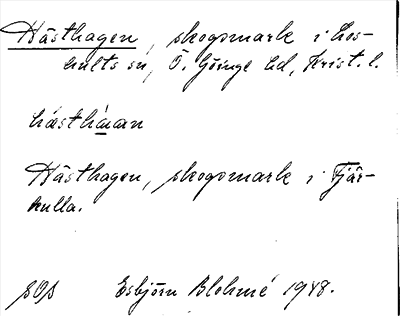 Hästhagen, skogsmark i Los-
hults sn, Ö. Göinge hd, Krist. l.
hästhagan
Hästhagen, skogsmark i Tjär-
kulla.
SOS Esbjörn Blohmé 1948.